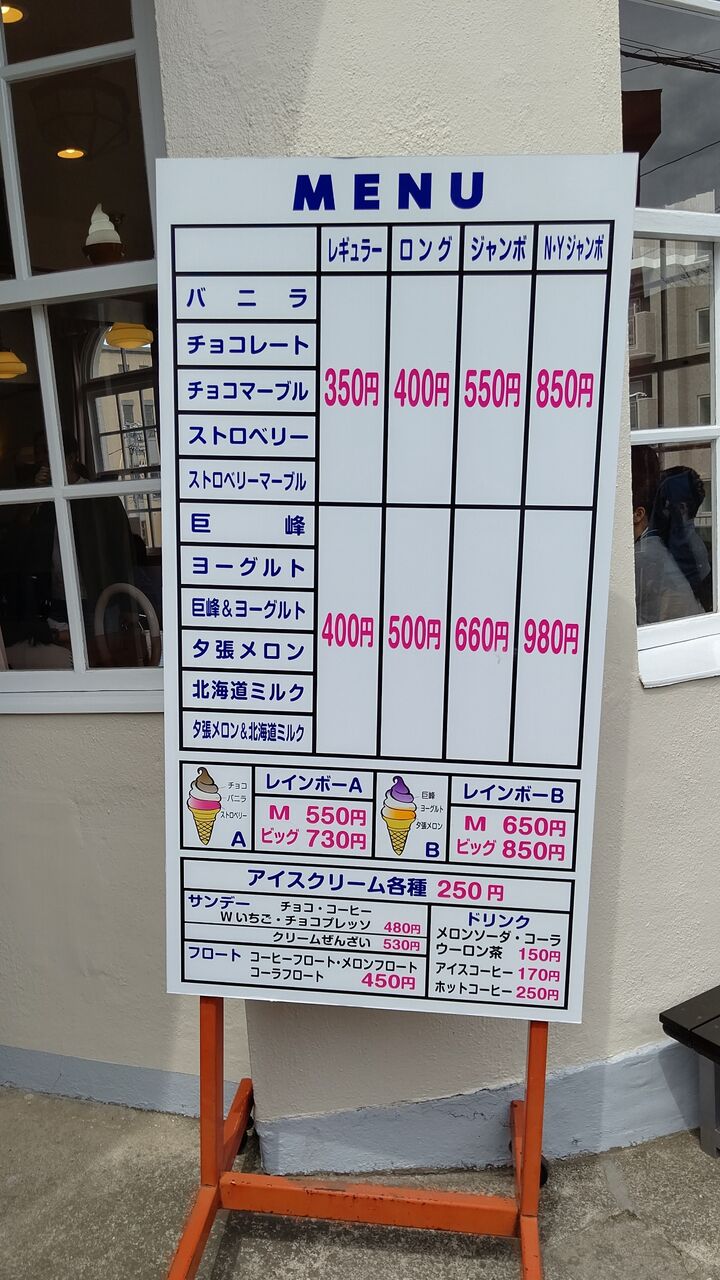 MENU
レギュラー ロング ジャンボ N・Yジャンボ
バニラ
チョコレート
チョコマーブル 350円 400円 550円 850円
ストロベリー
ストロベリーマーブル
巨峰
ヨーグルト
巨峰&ヨーグルト
夕張メロン 400円 500円 660円 980円
北海道ミルク
夕張メロン&北海道ミルク
チョコ
バニラ
ストロベリー
A
レインボーA
M 550円
ビッグ 730円
巨峰
ヨーグルト
夕張メロン
B
レインボーB
M 650円
ビッグ 850円
アイスクリーム各種 250円
サンデー チョコ・コーヒー
Wいちご・チョコプレッソ 480円
クリームぜんざい 530円
フロート コーヒーフロート・メロンフロート
コーラフロート 450円
ドリンク
メロンソーダ・コーラ
ウーロン茶 150円
アイスコーヒー 170円
ホットコーヒー 250円